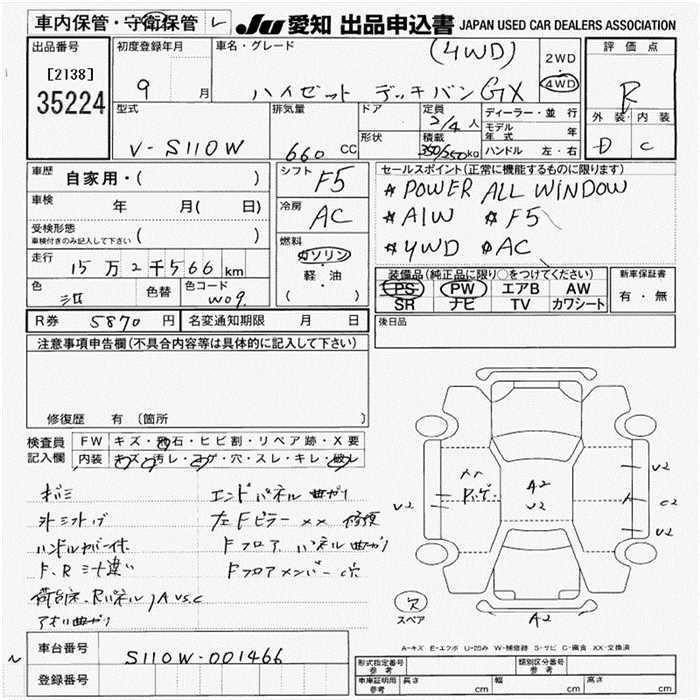 車内保管・守衛保管 レ
JU 愛知 出品申込書 JAPAN USED CAR DEALERS ASSOCIATION
出品番号
[2138]
35224
初度登録年月
9 月
車名・グレード
(4WD)
ハイゼット デッキバン GX
2WD
4WD
評価点
R
外装 内装
D C
型式
V-S110W
排気量
660 CC
ドア
形状
定員
2/4 人
積載
350/250 kg
ディーラー・並行
モデル年式 年
ハンドル 左・右
車歴
自家用・( )
車検
年 月( 日)
受検形態
車検付きのみ記入して下さい ( )
走行
15万2千566 km
色
色替
色コード
W09
シフト
F5
冷房
AC
燃料
ガソリン
軽・油
( )
セールスポイント(正常に機能するものに限ります)
*POWER ALL WINDOW
*A/W *F5
*4WD *AC
装備品(純正品に限り○をつけてください)
PS PW エアB AW
SR ナビ TV カワシート
新車保証書
有・無
R券 5870 円
名変通知期限 月 日
後日品
注意事項申告欄(不具合内容等は具体的に記入して下さい)
修復歴 有 (箇所 )
検査員
記入欄
FW キズ・飛石・ヒビ割・リペア跡・X要
内装 キズ・汚レ・コゲ・穴・スレ・キレ・破レ
エンドパネル曲ガリ
左Fピラー XX 修復
ハンドルカバー付
Fフロア パネル曲ガリ
F、Rミゾ違い
Fフロアメンバー穴
荷台床、Rパネル JA US.C
アオリ曲ガリ
XX
V2
A2
V2
V2
C2
V2
A2
穴
スペア
A-キズ E-エクボ U-凹み W-補修跡 S-サビ C-腐食 XX-交換済
車台番号
S110W-001466
登録番号
形式指定番号
参考
類別区分番号
参考
車庫証明用
参考
長さ cm
幅 cm
高さ cm